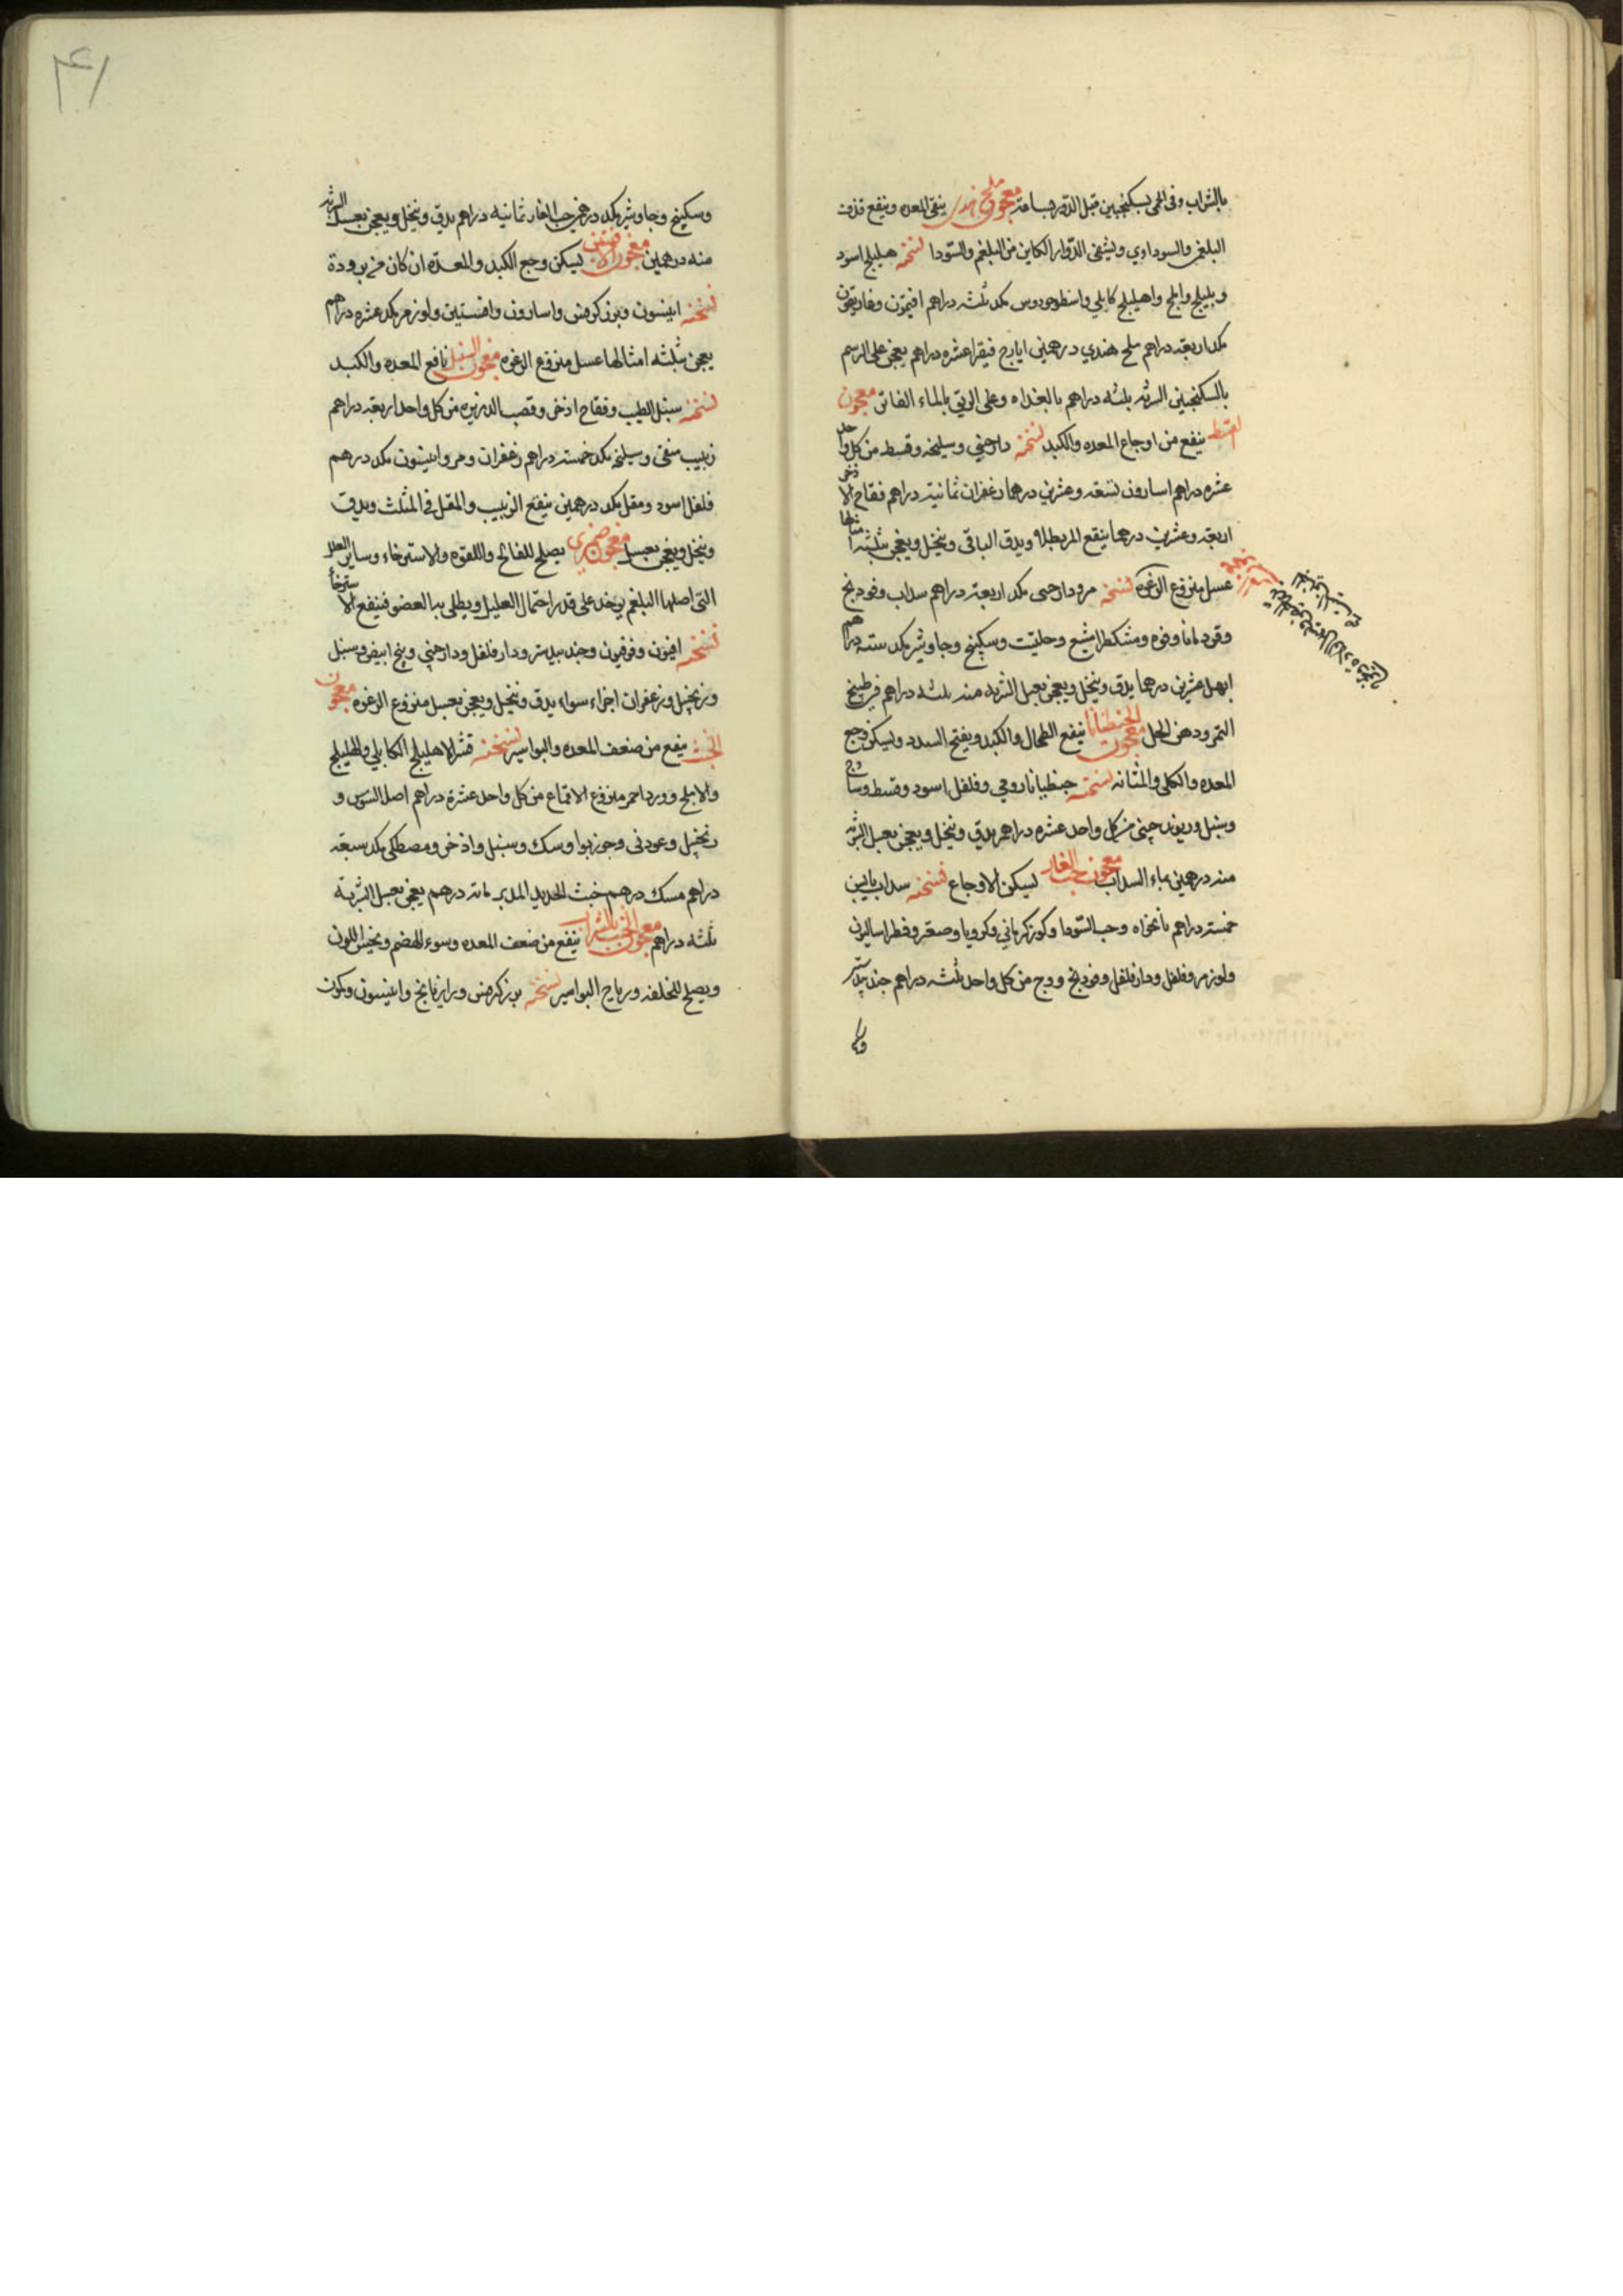 بالشراب وفى الحمى بسكنجبين قبل الدور بساعة معجون ملح هندى ينقى المعده وينفع قذف
البلغمى والسوداوي ويشفى الدوار الكاين من البلغم والسودا نسخته هليلج اسود
وبليلج واملج واهليلج كابلي واسطوخودوس مكد ثلثه دراهم افتيمون وغاريقون
مكد اربعة دراهم ملح هندي درهمين ايارج فيقرا عشره دراهم يعجن على الرسم
بالسكنجبين الشربه ثلثه دراهم بالغداه وعلى الريق بالماء الفاتر معجون
القسط ينفع من اوجاع المعده والكبد نسخته دارصيني وسليخه وقسط من كل واحد
عشره دراهم اسارون تسعة وعشرين درهما زعفران ثمانية دراهم فقاح الاذخر
اربعة وعشرين درهما ينقع المر بطلا ويدق الباقى وينخل ويعجن بثلثة امثالها
عسل منزوع الرغوه نسخته مر ودارصينى مكد اربعة دراهم سداب وفودنج
وقردمانا وفوه ومشكطرامشيع وحلتيت وسكبينج وجاوشير مكد سته دراهم
ابهل عشرين درهما يدق وينخل ويعجن بعسل الشربه منه ثلثه دراهم فى طبيخ
التمر ودهن الحل معجون الجنطيانا ينفع الطحال والكبد ويفتح السدد ويسكن وجع
المعده والكلى والمثانه نسخته جنطيانا رومي وفلفل اسود وقسط وساذج
وسنبل وريوند چيني من كل واحد عشره دراهم يدق وينخل ويعجن بعسل الشربه
منه درهمين بماء السداب معجون حب الغار ليسكن الاوجاع نسخته سداب يابس
خمسة دراهم نانخواه وحب السودا وكمون كرماني وكرويا وصعتر وفطراساليون
ولوز مر وفلفل ودارفلفل وفودنج ووج من كل واحد ثلثه دراهم جندبيدستر
وسكبينج وجاوشير مكد درهمين حب الغار ثمانيه دراهم يدق وينخل ويعجن بعسل الشربه
منه درهمين معجون الافسنتين ليسكن وجع الكبد والمعدة ان كان من برودة
نسخته انيسون وبزر كرفس واسارون وافسنتين ولوز مر مكد عشره دراهم
يعجن بثلثه امثالها عسل منزوع الرغوه معجون السنبل نافع المعده والكبد
نسخته سنبل الطيب وفقاح اذخر وقصب الذريره من كل واحد اربعة دراهم
زبيب منقى وسليخه مكد خمسة دراهم زعفران ومر وانيسون مكد درهم
فلفل اسود ومقل مكد درهمين ينقع الزبيب والمقل فى المثلث ويدق
وينخل ويعجن بعسل معجون يصلح للفالج واللقوه والاسترخاء وساير العلل
التى اصلها البلغم يوخذ على قدر احتمال العليل ويطلى به العضو فينفع الاسترخا
نسخته افيون وفرفيون وجندبيدستر ودارفلفل ودارچيني وبنج ابيض وسنبل
وزنجبيل وزعفران اجزاء سواء يدق وينخل ويعجن بعسل منزوع الرغوه معجون
الخبث ينفع من ضعف المعده والبواسير نسخته قشر الاهليلج الكابلي والبليلج
والاملج وورد احمر منزوع الاقماع من كل واحد عشرة دراهم اصل السوس و
زنجبيل وعود نى وجوز بوا وسك وسنبل واذخر ومصطكى مكد سبعة
دراهم مسك درهم خبث الحديد المدبر مائة درهم يعجن بعسل الشربة
ثلثه دراهم معجون الخبث بالشراب ينفع من ضعف المعده وسوء الهضم ويحسن اللون
ويصلح للخلفه ورياح البواسير نسخته بزر كرفس ورازيانج وانيسون وكمون